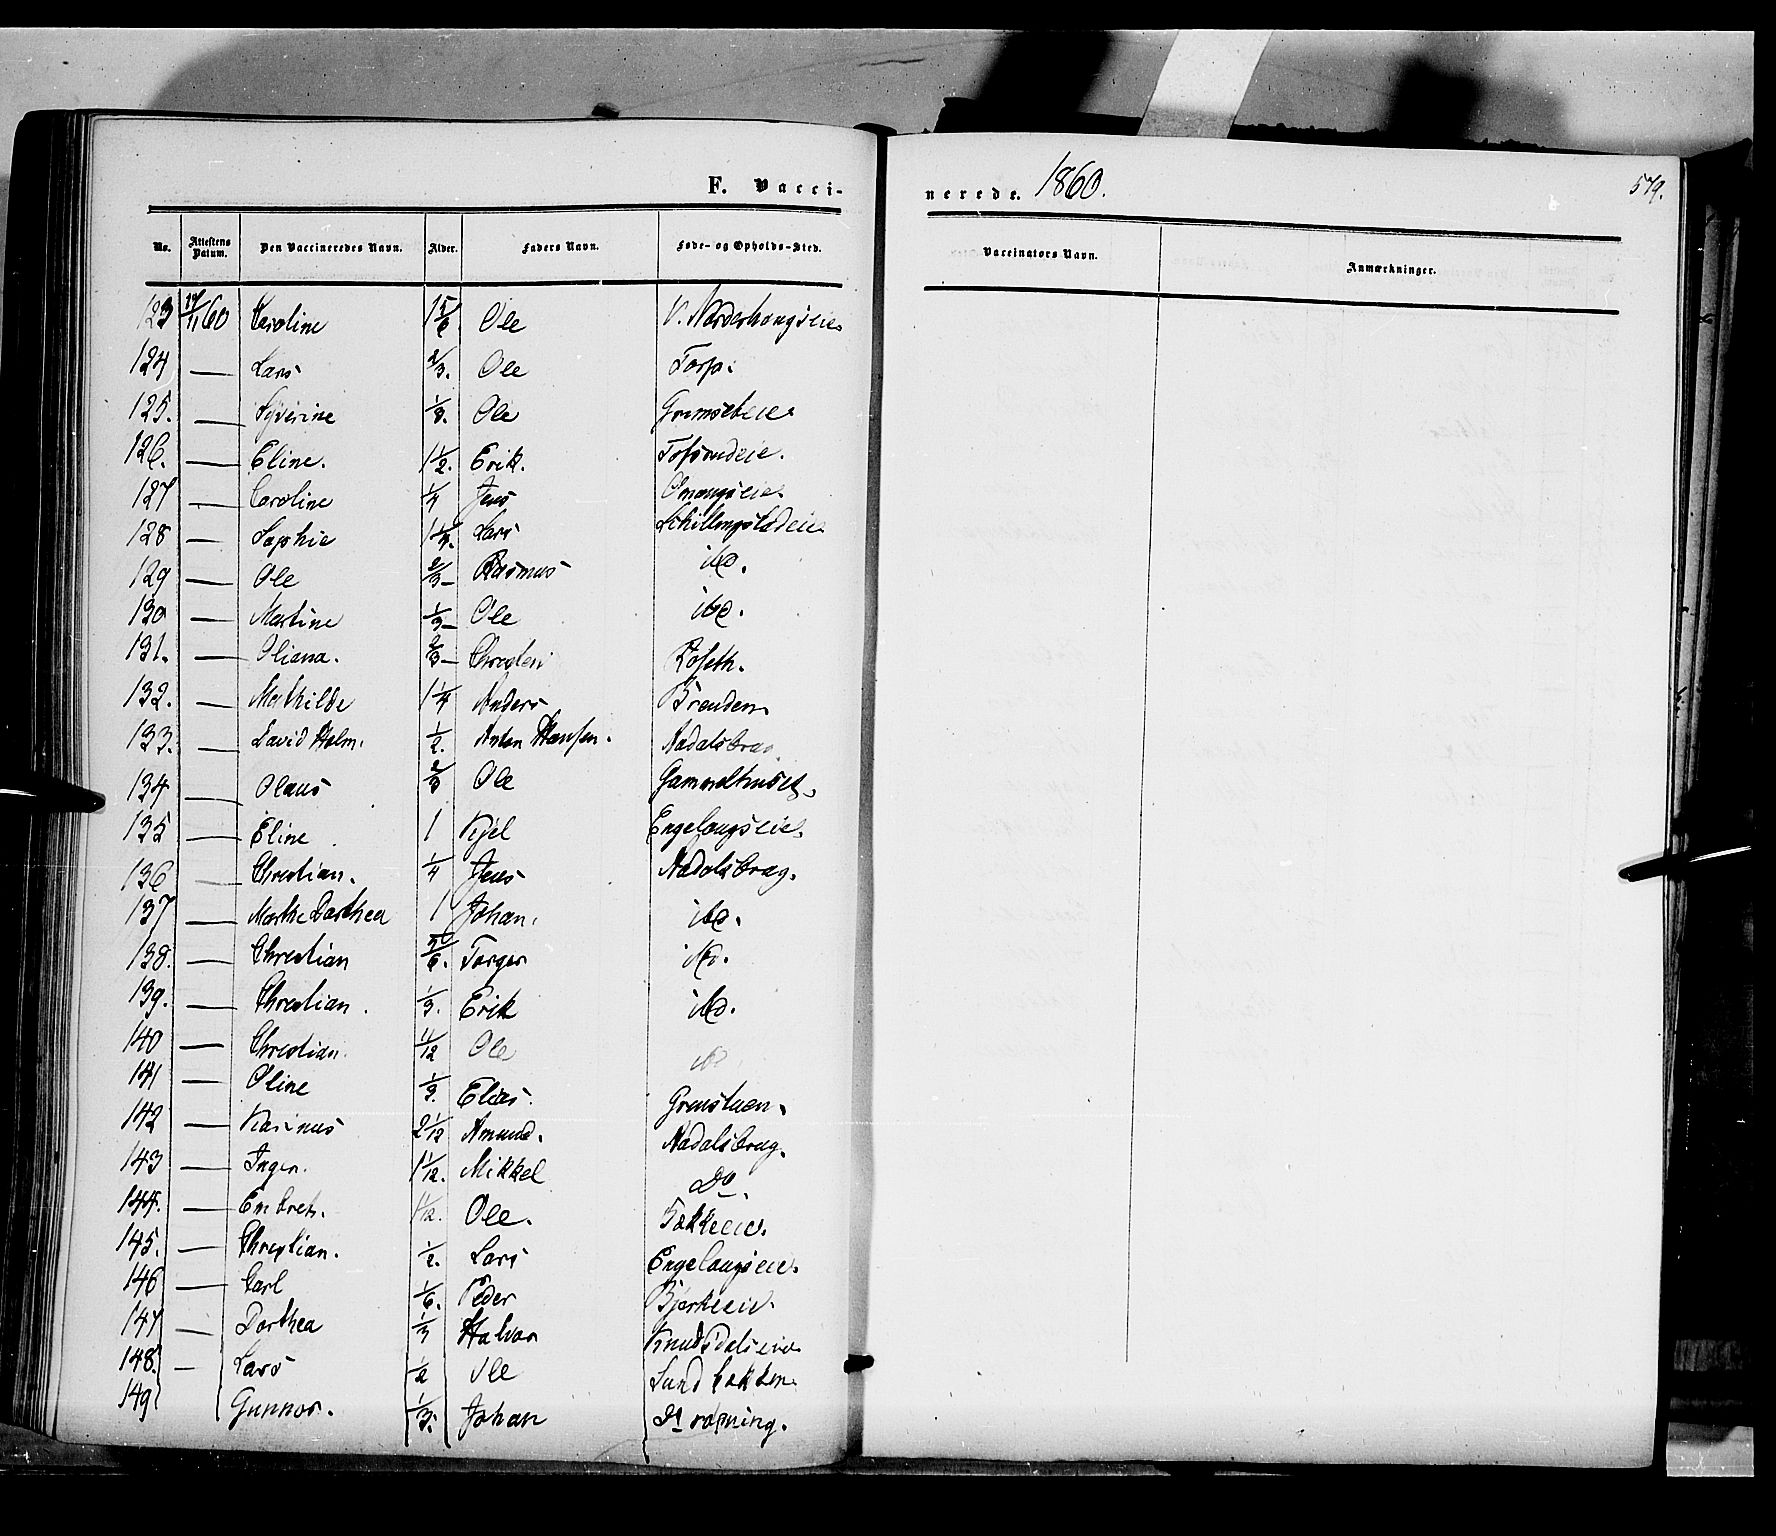 F. Vacci-
nerede. 1860.
579.
No. Attestens Datum. Den Vaccineredes Navn. Alder. Faders Navn. Føde- og Opholds-Sted. Vaccinators Navn. Anmærkninger.
123 19/11 60 Caroline 1 5/6 Ole V. Nordenhougseie
124 — Lars 2/3. Ole Torp.
125. — Syverine 1/3. Ole Grimsebeie
126. — Eline. 1 1/2. Erik.
127 — Caroline 1/4 Jens
128 — Sophie 1 1/3. Lars Schillingstadeie
129 — Ole 2/3 — Rasmus ibd.
130 — Martine 1/3 — Ole ibd.
131. — Oliana. 2/3 — Christen Roseth.
132. — Mathilde 1 1/4 Anders Brenden
133. — David Holm. 1/2. Anton Hansen. Aadalsbrug
134 — Olaus 2/3 Ole
135 — Eline 1 Kjel Engelaugseie.
136 — Christian. 1/4 Jens Aadalsbrug.
137 — Marthe Dorthea 1 Johan. ibd.
138. — Christian 5/6. Torger ibd.
139. — Christian. 1/3. Erik ibd.
140 — Christian. 11/12 Ole ibd
141 — Oline 1/3. Elias. Grønstuen.
142 — Karinus 2 1/12 Amund. Aadalsbrug.
143 — Inger. 1 1/12. Mikkel Do.
144. — Embret. 11/12. Ole. Bækkeeie.
145. — Christian. 1/2. Lars Engelaugseie.
146 — Carl 1/6. Peder Bjerkeeie.
147 — Dorthea 1/3 Halvor Knudsdalseie
148. — Lars 1/2 Ole Sundbakken
149 Gunnor. 1/3. Johan